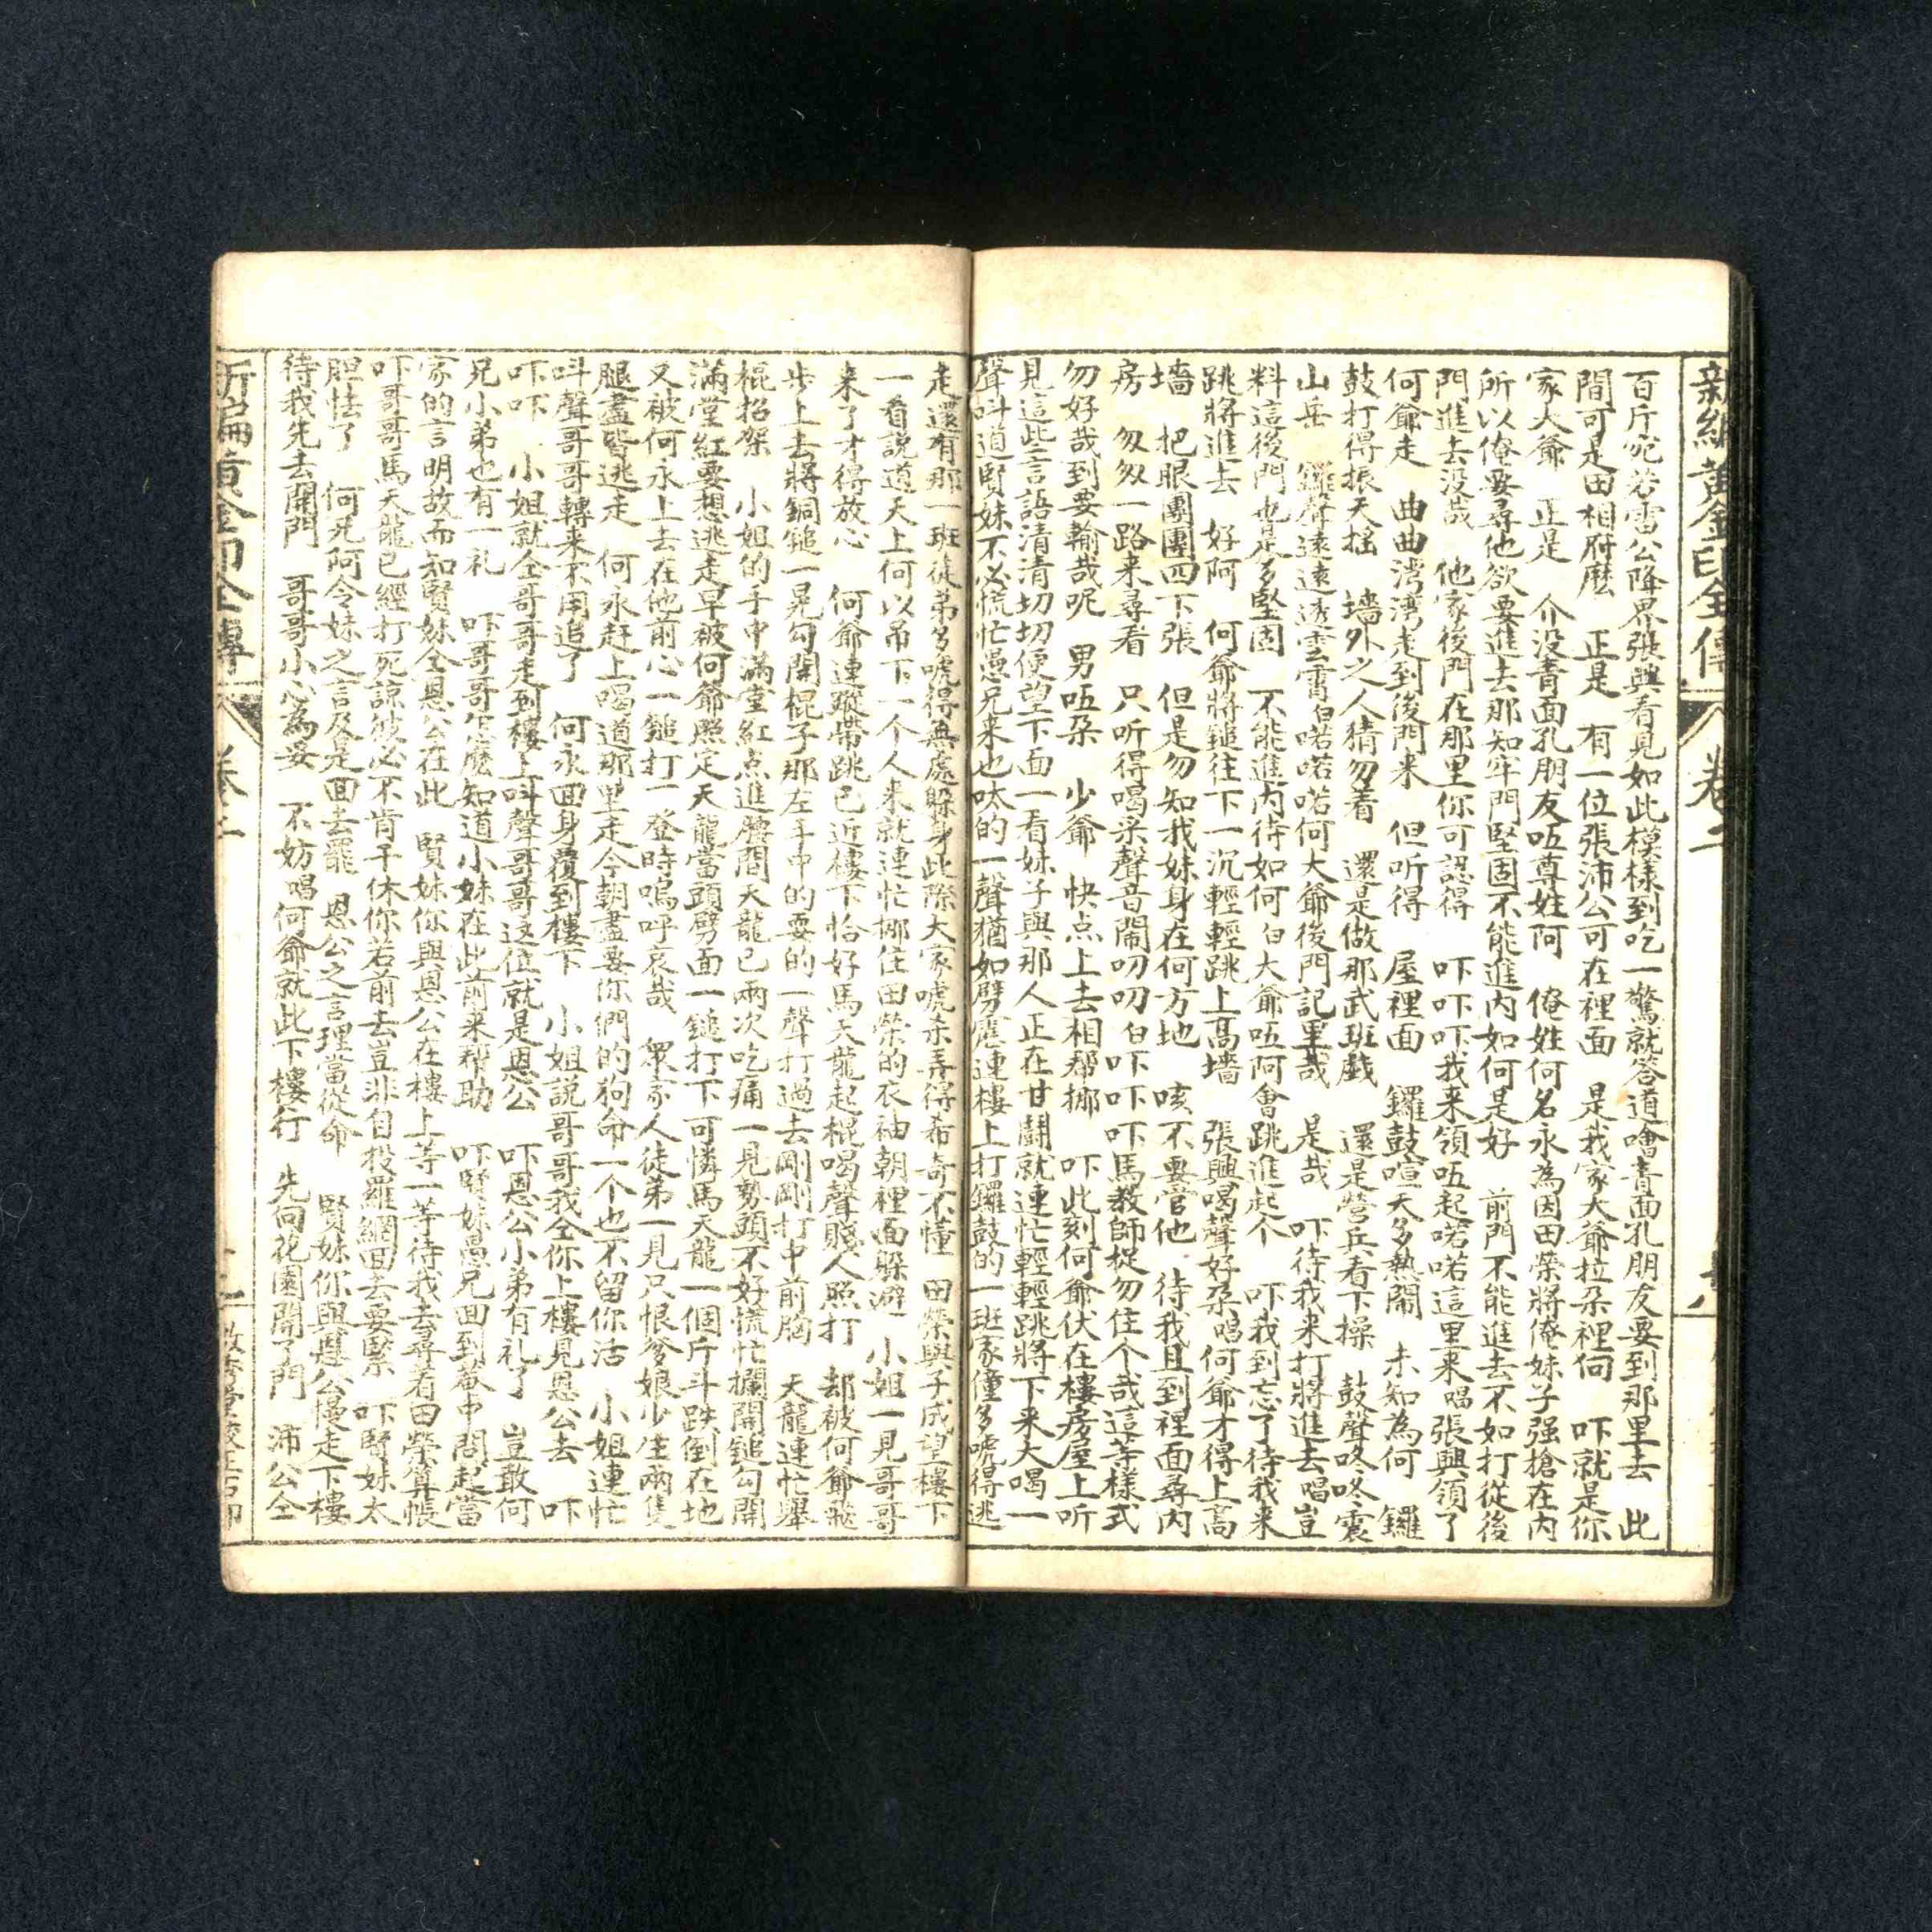 新編黃金印全傳 卷二
百斤宛若雷公降界張興看見如此模樣到吃一驚就答道噲青面孔朋友要到那里去 此
間可是田相府麽 正是 有一位張沛公可在裡面 是我家大爺拉朶裡向 吓就是你
家大爺 正是 介没青面孔朋友唔尊姓阿 俺姓何名永為因田榮將俺妹子强搶在内
所以俺要尋他欲要進去那知牢門堅固不能進内如何是好 前門不能進去不如打從後
門進去没哉 他家後門在那里你可認得 吓吓吓我来領唔起喏喏這里来唱張興領了
何爺走 曲曲湾湾走到後門来 但听得 屋裡面 鑼鼓喧天多熱鬧 未知為何 鑼
鼓打得振天摇 墙外之人猜勿着 還是做那武班戲 還是營兵看下操 鼓聲咚咚震
山岳 鑼聲遠遠透雲霄白喏喏喏何大爺後門記里哉 是哉 吓待我来打將進去唱豈
料這後門也是多堅固 不能進内待如何白大爺唔阿會跳進起个 吓我到忘了待我来
跳將進去 好阿 何爺將鎚往下一沉輕輕跳上高墻 張興喝聲好朶唱何爺才得上高
墻 把眼團團四下張 但是勿知我妹身在何方地 咳不要管他 待我且到裡面尋内
房 匆匆一路来尋看 只听得喝采聲音鬧叨叨白吓吓吓馬教師捉勿住个哉這等樣式
勿好哉到要輸哉呢 男唔朶 少爺 快点上去相帮挷 吓此刻何爺伏在樓房屋上听
見這些言語清清切切便望下面一看妹子與那人正在甘鬭就連忙輕輕跳將下来大喝一
聲呌道賢妹不必慌忙愚兄来也呔的一聲猶如劈靂連樓上打鑼鼓的一班家僮多唬得逃
走還有那一班徒弟多唬得無處躲身此際大家唬杀弄得希奇不懂 田榮與子成望樓下
一看説道天上何以吊下一个人来就連忙挷住田榮的衣袖朝裡面躲避 小姐一見哥哥
来了才得放心 何爺連蹤帶跳已近樓下恰好馬天龍起棍喝聲賤人照打 却被何爺飛
步上去將銅鎚一晃勾開棍子那左手中的耍的一聲打過去剛剛打中前胸 天龍連忙舉
棍招架 小姐的手中滿堂紅点進腰間天龍已兩次吃痛一見勢頭不好慌忙攔開鎚勾開
滿堂紅要想逃走早被何爺照定天龍當頭劈面一鎚打下可憐馬天龍一個斤斗跌倒在地
又被何永上去在他前心一鎚打一登時嗚呼哀哉 衆家人徒弟一見只恨爹娘少生兩隻
腿盡皆逃走 何永赶上喝道那里走今朝盡要你們的狗命一个也不留你活 小姐連忙
呌聲哥哥轉来不用追了 何永回身覆到樓下 小姐説哥哥我仝你上樓見恩公去 吓
吓吓 小姐就仝哥哥走到樓上呌聲哥哥這位就是恩公 吓恩公小弟有礼了 豈敢何
兄小弟也有一礼 吓哥哥怎麽知道小妹在此前来帮助 吓賢妹愚兄回到菴中問起當
家的言明故而知賢妹仝恩公在此 賢妹你與恩公在樓上等一等待我去尋着田榮算帳
吓哥哥馬天龍已經打死諒彼必不肯干休你若前去豈非自投羅網回去要緊 吓賢妹太
胆怯了 何兄阿令妹之言及是回去罷 恩公之言理當從命 賢妹你與恩公慢走下樓
待我先去開門 哥哥小心為妥 不妨唱何爺就此下樓行 先向花園開了門 沛公仝
新編黃金印全傳 卷二